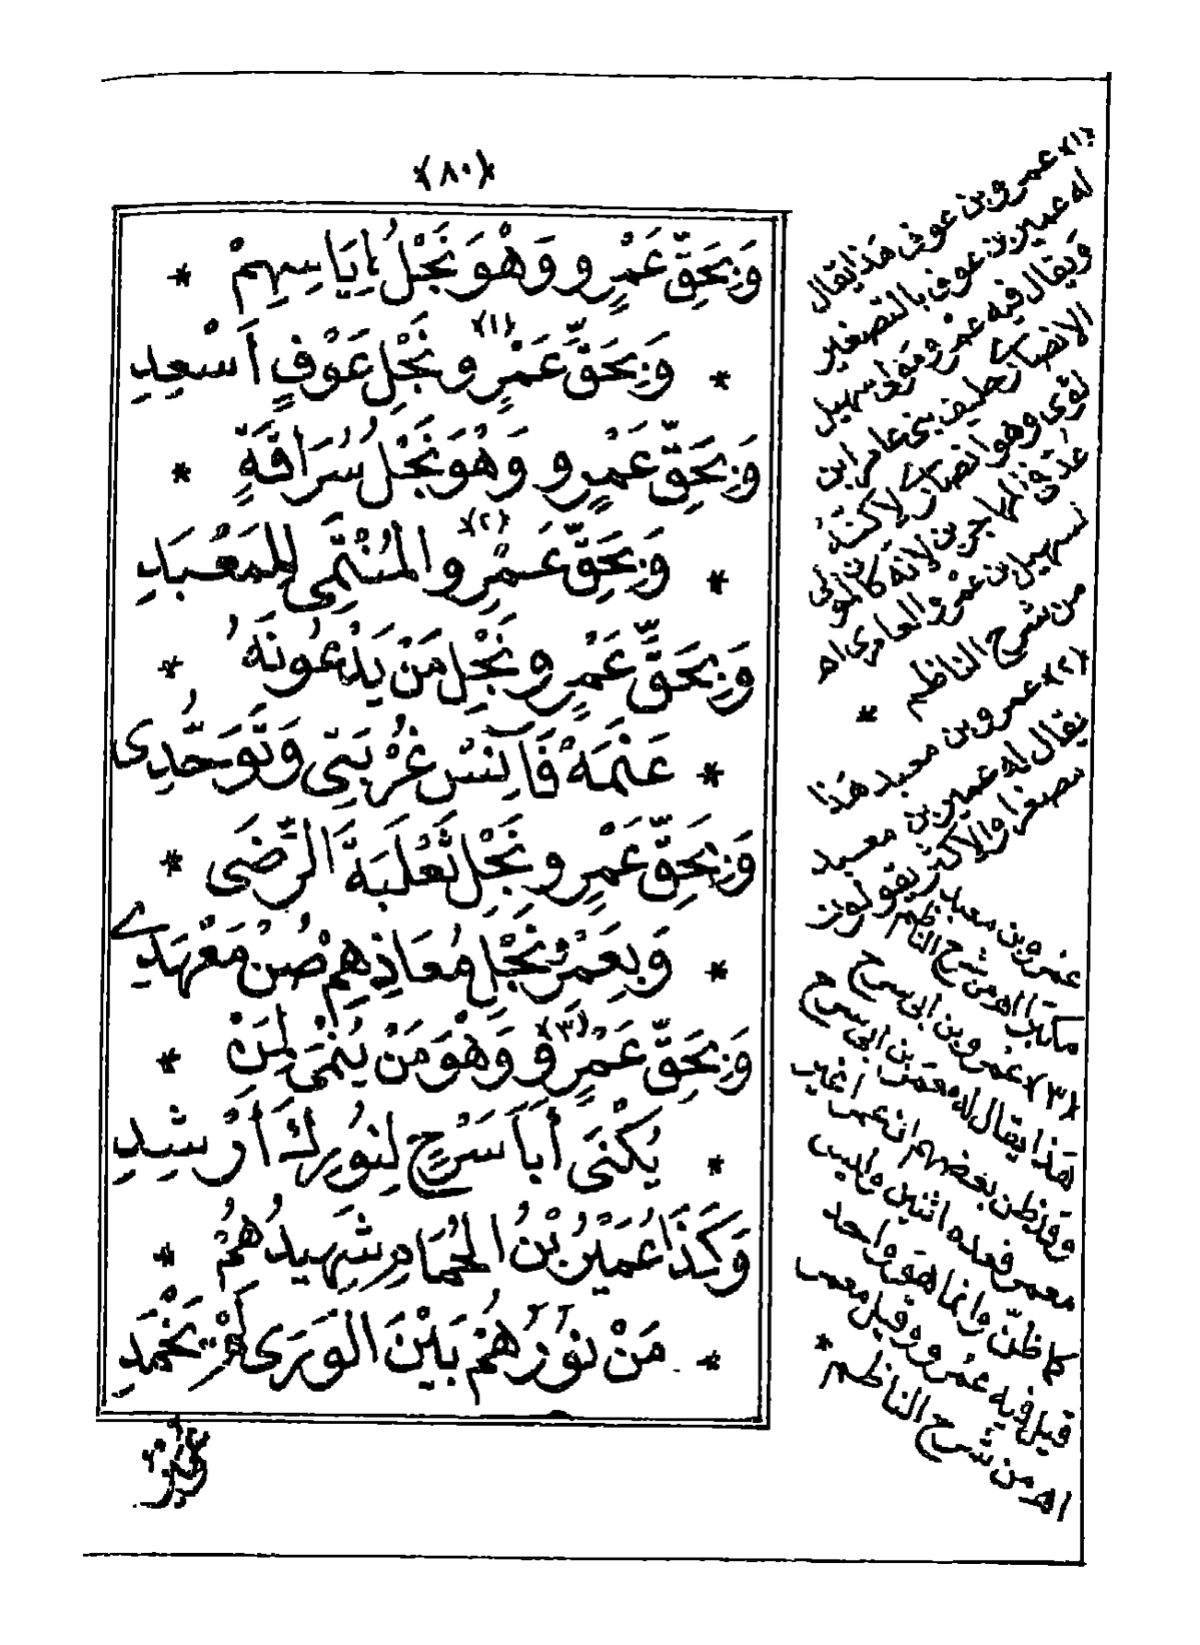 ﴿٨٠﴾
وَبِحَقِّ عَمْرٍو وَهْوَ نَجْلُ إِيَاسِهِمْ *
* وَبِحَقِّ عَمْرٍو (١) نَجْلِ عَوْفٍ أَسْعِدِ
وَبِحَقِّ عَمْرٍو وَهُوَ نَجْلُ سُرَاقَةٍ *
* وَبِحَقِّ عَمْرٍو (٢) الْمُنْتَمِى لِلْمَعْبَدِ
وَبِحَقِّ عَمْرٍو نَجْلِ مَنْ يَدْعُونَهُ *
* عَنَمَهْ فَآنِسْ غُرْبَتِى وَتَوَحُّدِى
وَبِحَقِّ عَمْرٍو نَجْلِ ثَعْلَبَةَ الرِّضَى *
* وَبِعَمْرٍ نَجْلِ مُعَاذِهِمْ صُنْ مَعْهَدِى
وَبِحَقِّ عَمْرٍو (٣) وَهْوَ مَنْ يُنْمَى لِمَنْ *
* يُكْنَى أَبَا سَرْحٍ لِنُورِكَ أَرْشِدِ
وَكَذَا عُمَيْرُ بْنُ الْحُمَامِ شَهِيدُهُمْ *
* مَنْ نُورُهُمْ بَيْنَ الْوَرَى لَمْ يَخْمُدِ
(١) عمرو بن عوف هذا يقال
له عمير بن عوف بالتصغير
ويقال فيه عمرو مولى سهيل
الانصارى حليف بنى عامر ابن
لؤى وهو انصارى لاكنه
عده فى المهاجرين لانه كان مولى
سهيل بن عمرو العامرى اه
من شرح الناظم *
(٢) عمرو بن معبد هذا
يقال له عمير بن معبد
مصغرا والاكثر يقولون
عمرو بن معبد
مكبرا اه من شرح الناظم
(٣) عمرو بن ابى سرح
هذا يقال له معمر بن ابى سرح
وقد ظن بعضهم ان عمرا غير
معمر فعده اثنين وليس
كما ظن وانما هو واحد
قيل فيه عمرو وقيل معمر
اه من شرح الناظم *